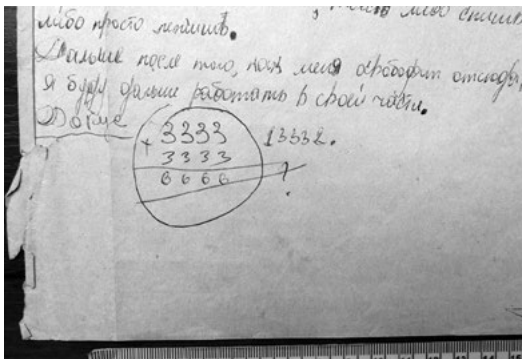 либо просто лежишь.
Дальше после того, как меня освободят отсюда,
я буду дальше работать в своей части.
+ 3333 13332.
3333
6666 ?